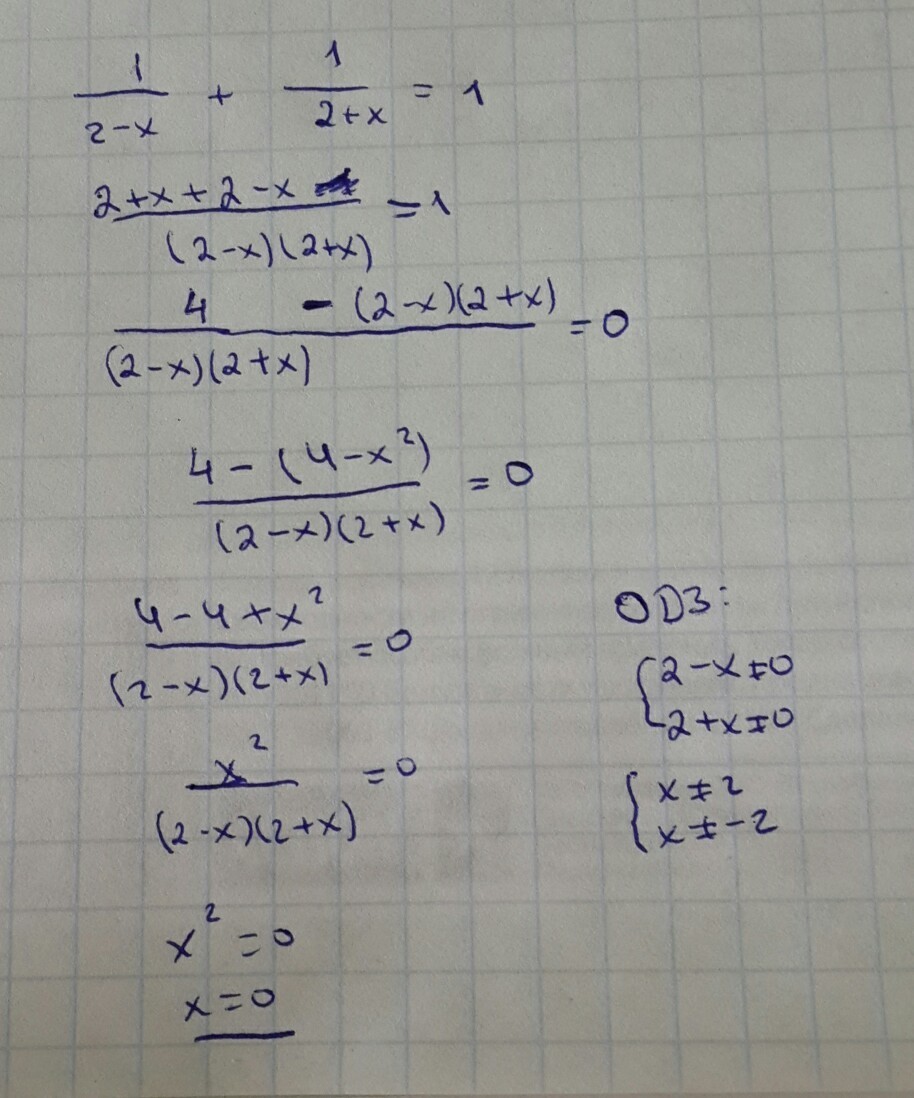 1/(2-x) + 1/(2+x) = 1
(2+x+2-x)/((2-x)(2+x)) = 1
(4 - (2-x)(2+x))/((2-x)(2+x)) = 0
(4-(4-x²))/((2-x)(2+x)) = 0
(4-4+x²)/((2-x)(2+x)) = 0
x²/((2-x)(2+x)) = 0
x² = 0
x = 0
ОДЗ:
{2-x≠0
2+x≠0
{x≠2
x≠-2